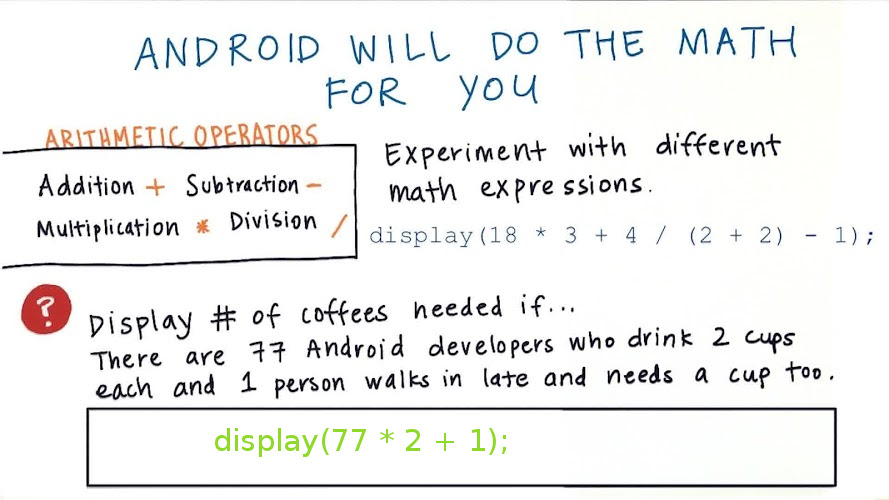 ANDROID WILL DO THE MATH
FOR YOU
ARITHMETIC OPERATORS
Addition + Subtraction -
Multiplication * Division /
Experiment with different
math expressions.
display(18 * 3 + 4 / (2 + 2) - 1);
?
Display # of coffees needed if...
There are 77 Android developers who drink 2 cups
each and 1 person walks in late and needs a cup too.
display(77 * 2 + 1);